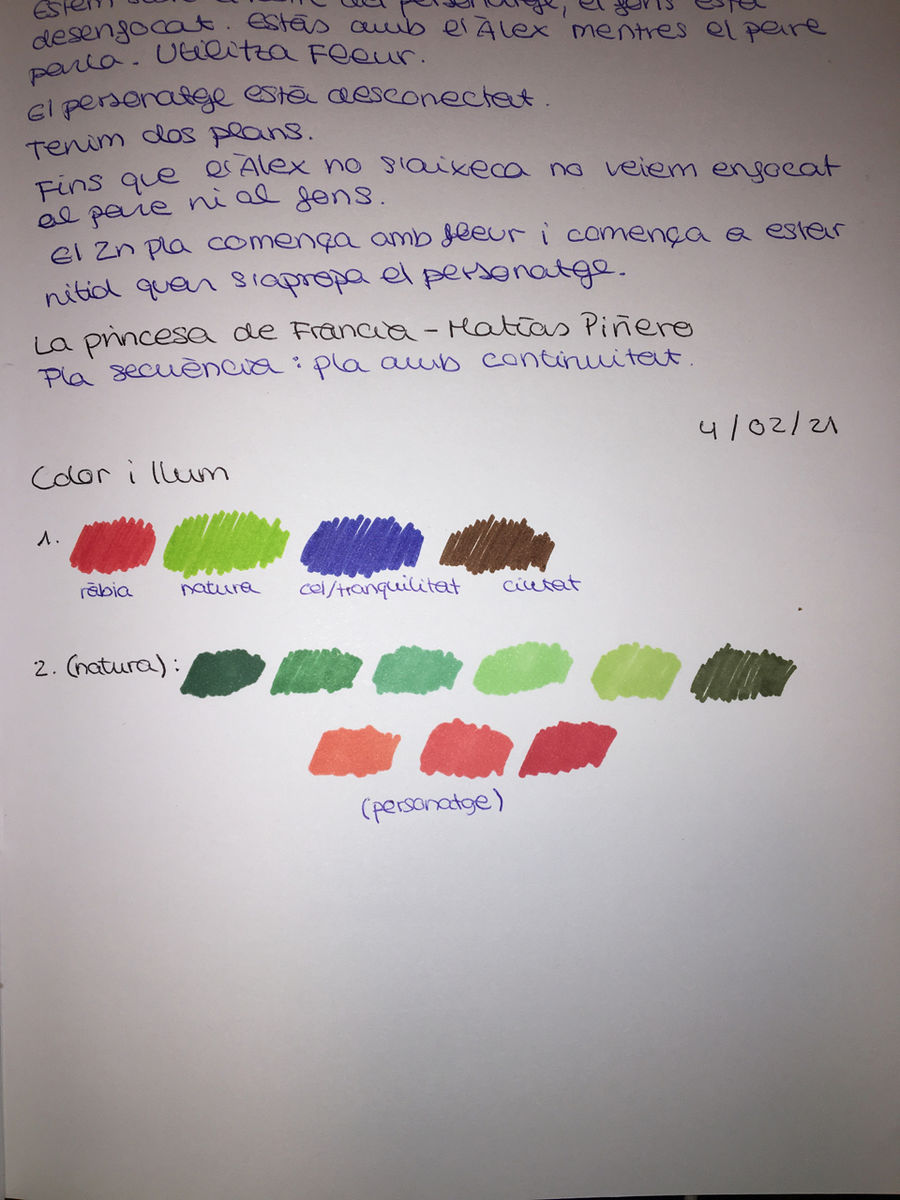 del personatge, el fons està
desenfocat. Estàs amb el Àlex mentres el pare
parla. Utilitza Fleur.
El personatge està desconectat.
Tenim dos plans.
Fins que el Àlex no s'aixeca no veiem enfocat
al pare ni al fons.
El 2n pla comença amb fleur i comença a estar
nítid quan s'apropa el personatge.
La princesa de Francia - Matías Piñero
Pla secuència : pla amb continuitat.
4/02/21
Color i llum
1.
ràbia natura cel/tranquilitat ciutat
2. (natura) :
(personatge)